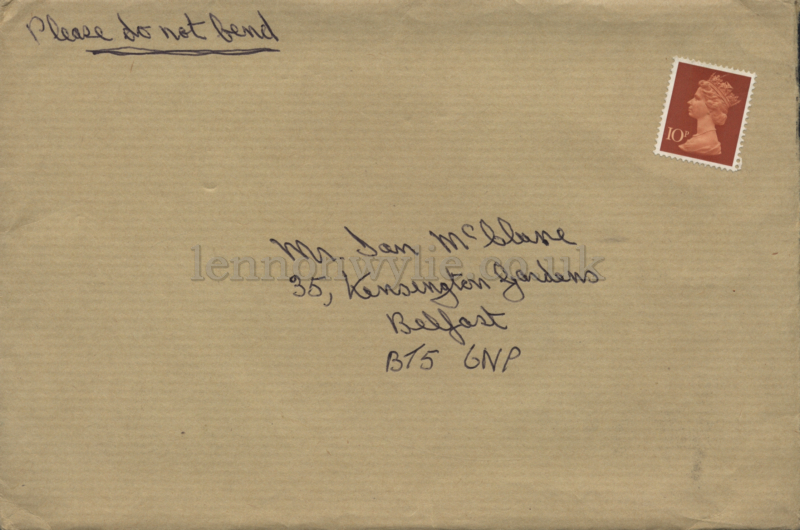 Please do not bend
10P
Mr.
lennonwylie.co.uk
35, Kensington Gardens
Belfast
BT5 6NP